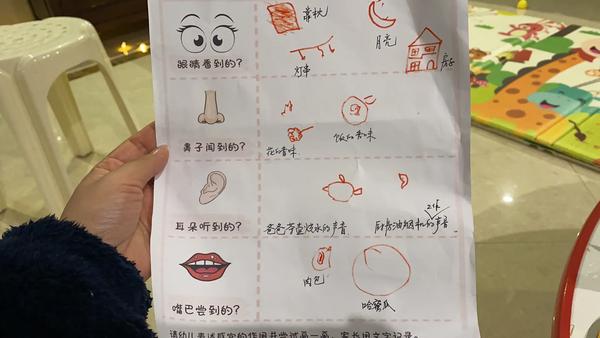 眼睛看到的?
靠枕
月亮
灯串
房子
鼻子闻到的?
花的香味
饭的香味
耳朵听到的?
爸爸茶壶烧水的声音
厨房油烟机的声音
工作
嘴巴尝到的?
肉包
哈密瓜
请幼儿表述感官的作用并尝试画一画,家长用文字记录。